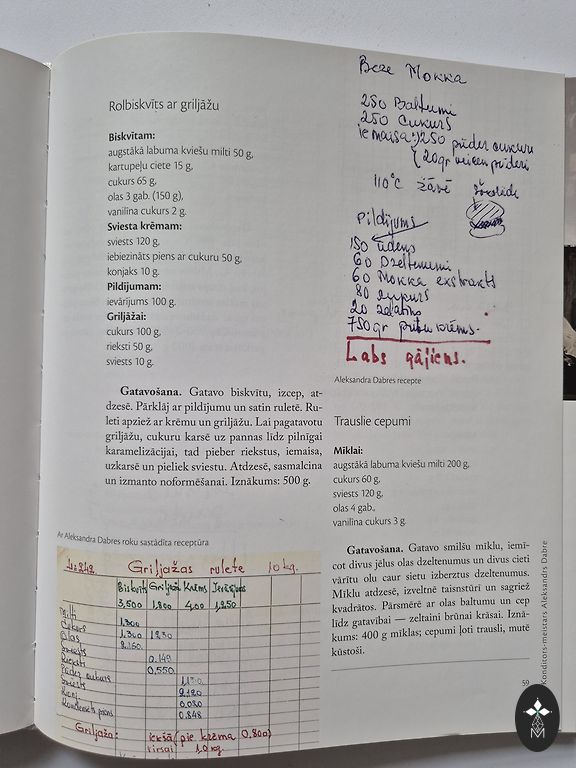 Rolbiskvīts ar griljāžu
Biskvītam:
augstākā labuma kviešu milti 50 g,
kartupeļu ciete 15 g,
cukurs 65 g,
olas 3 gab. (150 g),
vanilīna cukurs 2 g.
Sviesta krēmam:
sviests 120 g,
iebiezināts piens ar cukuru 50 g,
konjaks 10 g.
Pildījumam:
ievārījums 100 g.
Griljāžai:
cukurs 100 g,
rieksti 50 g,
sviests 10 g.
Gatavošana. Gatavo biskvītu, izcep, at-
dzesē. Pārklāj ar pildījumu un satin ruletē. Ru-
leti apziež ar krēmu un griljāžu. Lai pagatavotu
griljāžu, cukuru karsē uz pannas līdz pilnīgai
karamelizācijai, tad pieber riekstus, iemaisa,
uzkarsē un pieliek sviestu. Atdzesē, sasmalcina
un izmanto noformēšanai. Iznākums: 500 g.
Ar Aleksandra Dabres roku sastādīta receptūra
Griljažas rulete 10 kg.
Biskvīts Griljaža Krēms Ievārījums
3,500 1,800 4,00 1,250
Milti 1.300
Cukurs 1.300 1230
Olas 2.160
Sviests 0.149
Rieksti 0.550
Pūder cukurs 1,130
Sviests 2.120
Konj. 0.080
Kondensēts piens 0.848
Griljaža: iekšā (pie krēma 0.800)
virsai 1,0 kg.
Beze Mokka
250 Baltumi
250 Cukurs
iemaisa: 250 pūder cukuru
110°C žāvē
Pildījums
150 ūdens
60 Dzeltenumi
60 Mokka ekstrakts
80 cukurs
20 želatīns
750 gr putu krēms.
Labs gājiens.
Aleksandra Dabres recepte
Trauslie cepumi
Mīklai:
augstākā labuma kviešu milti 200 g,
cukurs 60 g,
sviests 120 g,
olas 4 gab.,
vanilīna cukurs 3 g.
Gatavošana. Gatavo smilšu mīklu, iemī-
cot divus jēlus olas dzeltenumus un divus cieti
vārītu olu caur sietu izberztus dzeltenumus.
Mīklu atdzesē, izveltnē taisnstūri un sagriež
kvadrātos. Pārsmērē ar olas baltumu un cep
līdz gatavībai — zeltaini brūnai krāsai. Iznā-
kums: 400 g mīklas; cepumi ļoti trausli, mutē
kūstoši.
Konditors-meistars Aleksandrs Dabre
59
M